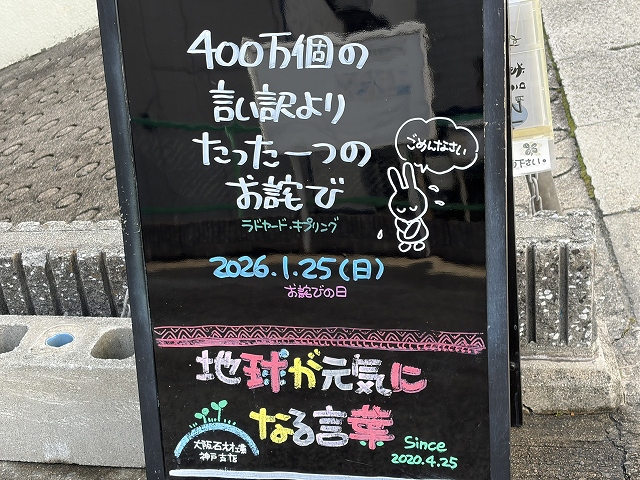 400万個の
言い訳より
たった一つの
お詫び
ラドヤード・キプリング
ごめんなさい
2026.1.25(日)
お詫びの日
地球が元気に
なる言葉
大阪石材工場
神戸支店
Since
2020.4.25
下さい。